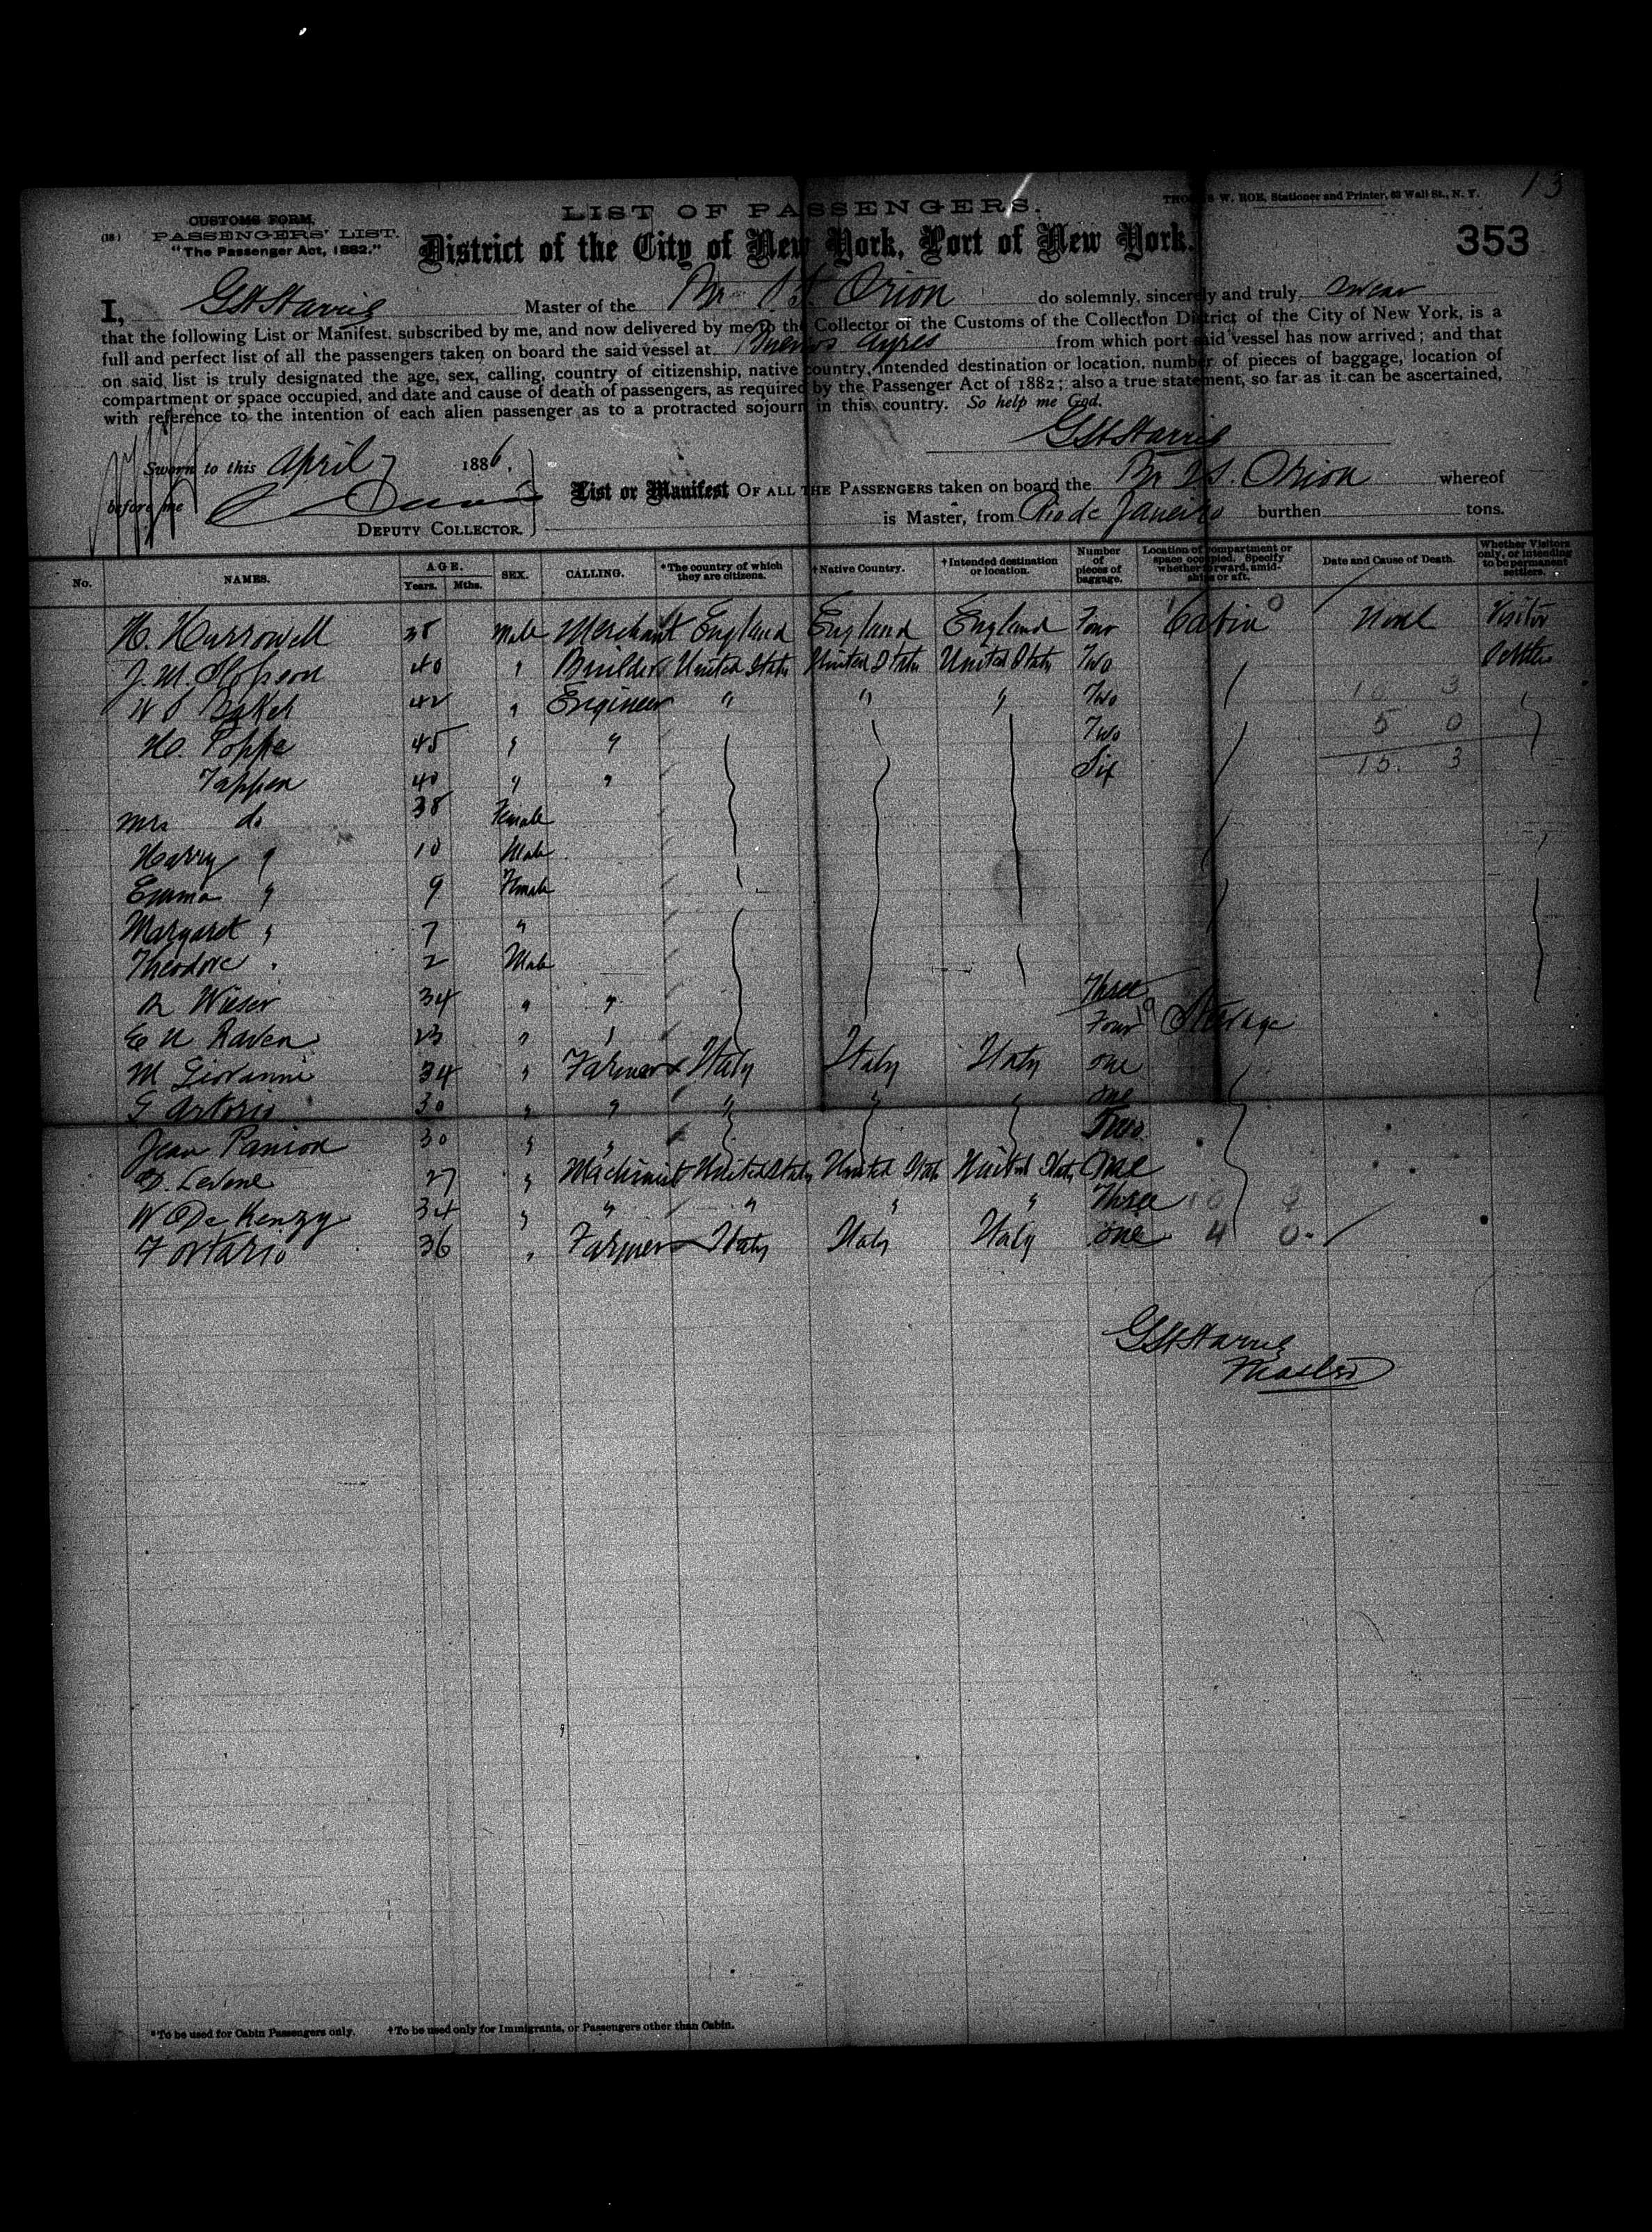 13
THOMAS W. ROE, Stationer and Printer, 63 Wall St., N. Y.
LIST OF PASSENGERS.
CUSTOMS FORM.
(18) PASSENGERS' LIST.
"The Passenger Act, 1882."
District of the City of New York, Port of New York.
353
I, Master of the Br Orion do solemnly, sincerely and truly, swear
that the following List or Manifest, subscribed by me, and now delivered by me to the Collector of the Customs of the Collection District of the City of New York, is a
full and perfect list of all the passengers taken on board the said vessel at Buenos Ayres from which port said vessel has now arrived; and that
on said list is truly designated the age, sex, calling, country of citizenship, native country, intended destination or location, number of pieces of baggage, location of
compartment or space occupied, and date and cause of death of passengers, as required by the Passenger Act of 1882; also a true statement, so far as it can be ascertained,
with reference to the intention of each alien passenger as to a protracted sojourn in this country. So help me God.
Sworn to this April 7 1886.
before me
DEPUTY COLLECTOR.
List or Manifest OF ALL THE PASSENGERS taken on board the Br S. Orion whereof
is Master, from Rio de Janeiro burthen tons.
No. NAMES. AGE. Years. Mths. SEX. CALLING. *The country of which they are citizens. †Native Country. †Intended destination or location. Number of pieces of baggage. Location of compartment or space occupied. Specify whether forward, amidships or aft. Date and Cause of Death. Whether Visitors only, or intending to be permanent settlers.
H. Hurrowell 38 Male Merchant England England England Four Cabin None Visitor
J. M. 40 " Builder United States United States United States Two
W S Baker 42 " Engineer " " " Two 10 3
H. Poppe 45 " " Two 5 0
Tappen 40 " " Six 15. 3
Mrs do 38 Female
Harry " 10 Male
Emma " 9 Female
Margaret " 7 "
Theodore " 2 Male
R Wieser 34 " " Three
E N Raven 23 " " Four Steerage
M Giovanni 34 " Farmer Italy Italy Italy one
G Artorio 30 " " " " " one
Jean 30 " "
D. Levene 27 " Machinist United States United States United States One
W O De Kenzy 34 " " " " " Three
F Ortario 36 " Farmer Italy Italy Italy one 4 0
Master
*To be used for Cabin Passengers only. †To be used only for Immigrants, or Passengers other than Cabin.